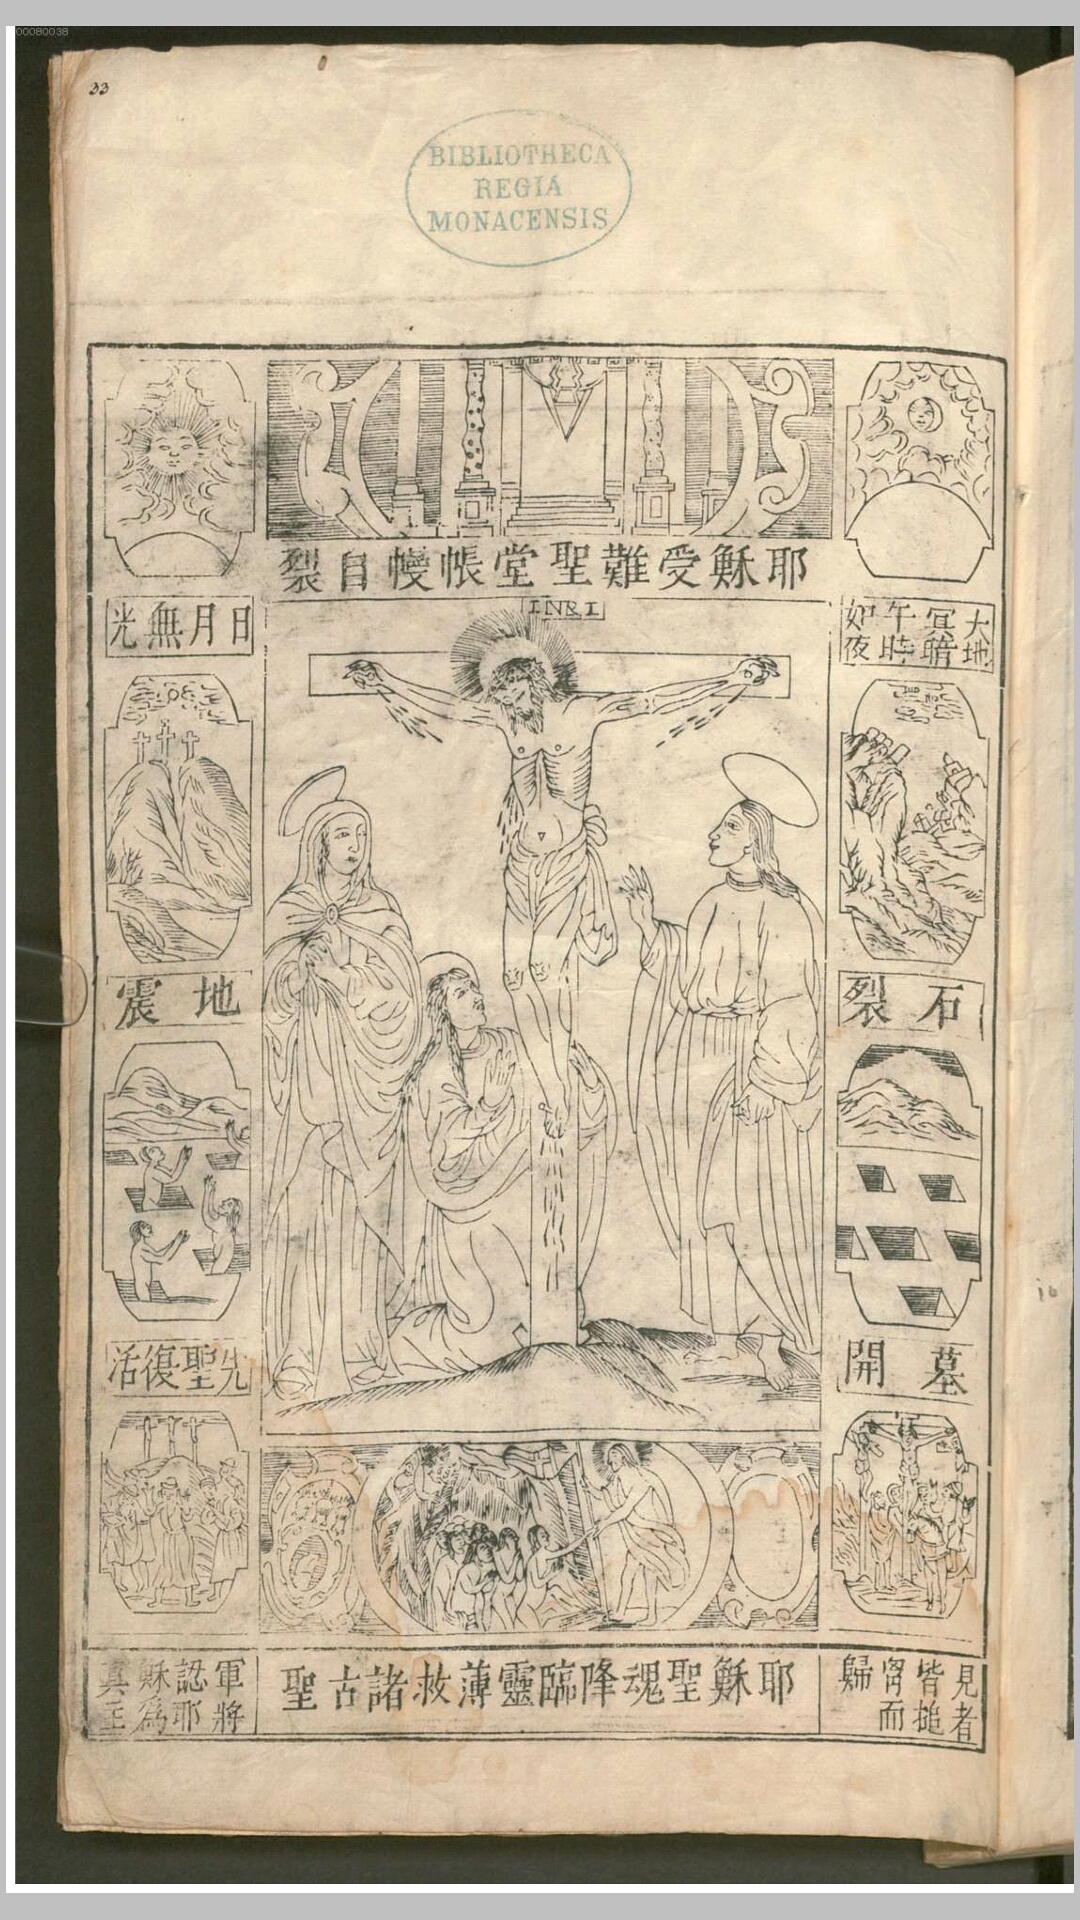 00080038
33
BIBLIOTHECA
REGIA
MONACENSIS
耶穌受難聖堂帳幔自裂
INRI
大地
冥暗
午時
如夜
日月無光
石裂
地震
墓開
先聖復活
見者
皆搥
胷而
歸
耶穌聖魂降臨靈薄救諸古聖
軍將
認耶
穌為
真主